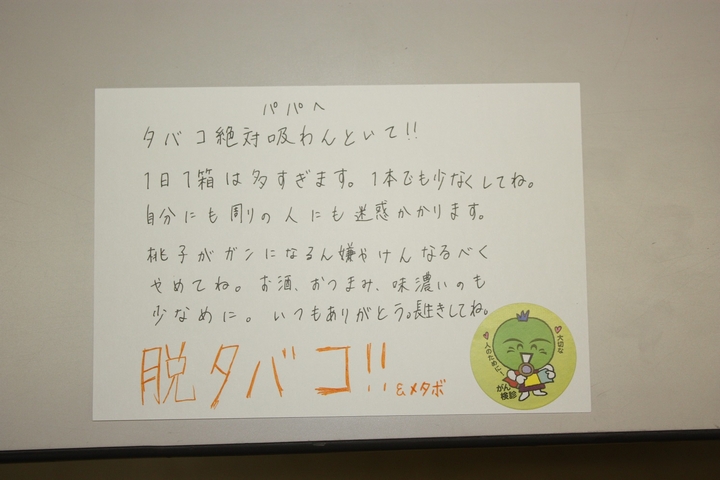 パパへ
タバコ絶対吸わんといて!!
1日1箱は多すぎます。1本でも少なくしてね。
自分にも周りの人にも迷惑かかります。
桃子がガンになるん嫌やけんなるべく
やめてね。お酒、おつまみ、味濃いのも
少なめに。いつもありがとう。長生きしてね。
脱タバコ!!
&メタボ
大切な
人のために…
がん
検診